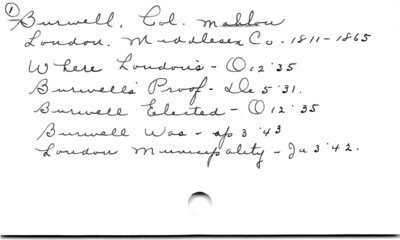 ① Burwell, Col. Mahlon
London. Middlesex Co. - 1811-1865
Where London is - O 12 '35
Burwell's Proof. - De 5 '31.
Burwell Elected - O 12 '35
Burwell Was - ap 3 '43
London Municipality - Ja 3 '42.